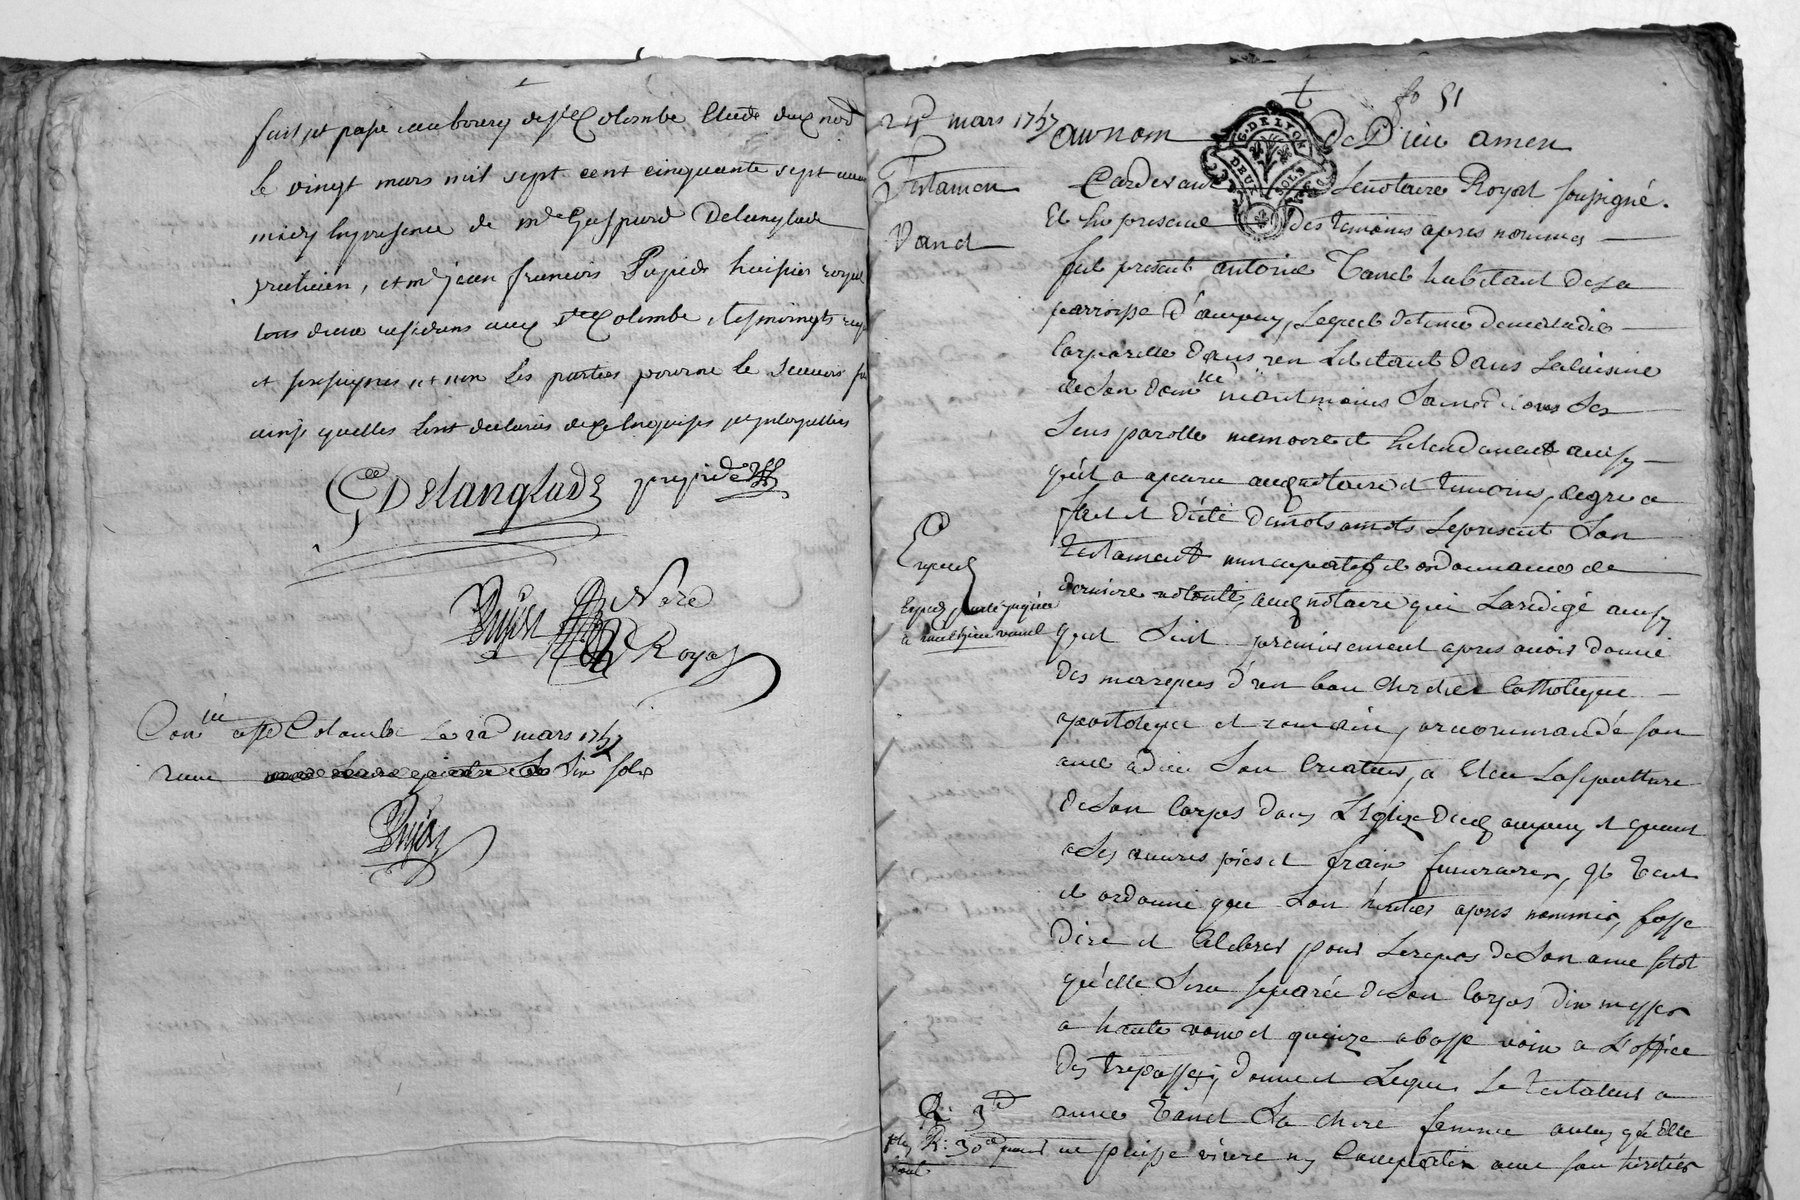 fait et passé au bourg de Ste Colombe Etude dud not
le vingt mars mil sept cent cinquante sept avant
midy en presence de mr Gaspard Delanglade
praticien, et mr jean francois Pupier huissier royal
tous deux residens aux Ste Colombe, tesmoingts
et soussignes et non les parties pour ne le scavoir
ainsi quelles sont declarées de ce enquises
Gce Delanglade
Nore
Royal
Conlé a Ste Colombe le 22 mars 1757
receu six sols
fo 51
24 mars 1757
Testamen
Vanel
G. DE LYON
DEUX SOLS
au nom de Dieu amen
Pardevant le notaire Royal soussigné.
Et en presence des temoins apres nommes
fut present antoine Vanel habitant de la
parroisse d'ampuy, lequel detenu de maladie
corporelle dans son lit etant dans la cuisine
de son domlle neantmoins dans ses
sens parolle memoire et entendement ainsy
qu'il a aparu aud notaire et temoins, de gre a
fait et dicté de mots a mots le present son
testament nuncupatif et ordonnance de
derniere volonté, aud notaire qui la redigé ainsy
que suit premierement apres avoir donné
des marques d'un bon chretien Catholique
apostolique et romain, a recommandé son
ame a dieu son Createur, a elleu la sepulture
de son corps dans l'Eglise dud ampuy et quant
a ses œuvres pies et frais funeraires, il veut
et ordonne que son heritier apres nommé, fasse
dire et celebrer pour le repos de son ame sitot
qu'elle sera separée de son corps dix messes
a haute voix et quinze a basse voix a l'office
des trepasses, donne et legue le testateur a
anne Vanel sa chere femme au cas qu'elle
ne puisse vivre ny compatir avec son heritier
Exped
Exped
a vanel
R: 3